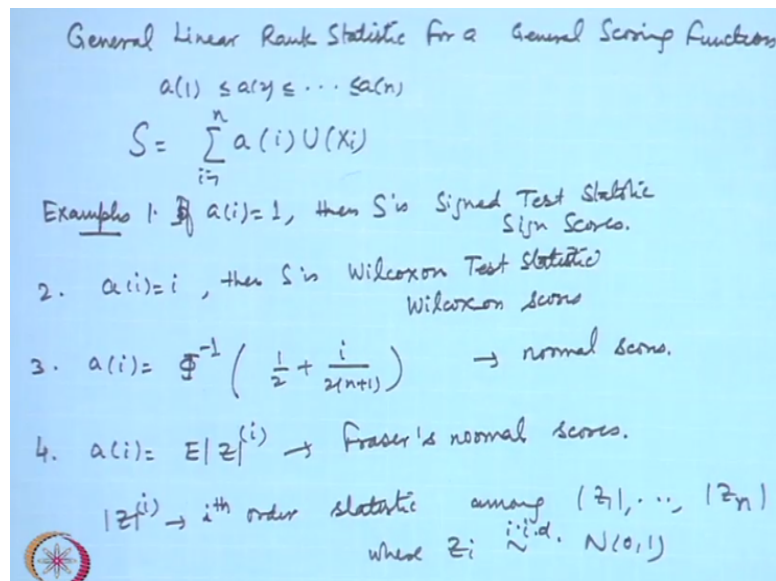 General Linear Rank Statistic for a General Scoring Functions
a(1) ≤ a(2) ≤ ... ≤ a(n)
S = \sum_{i=1}^{n} a(i) U(Xi)
Examples 1. If a(i)=1, then S is Signed Test Statistic
Sign Scores.
2. a(i)=i, then S is Wilcoxon Test Statistic
Wilcoxon scores
3. a(i)= Φ^{-1} ( 1/2 + i/2(n+1) ) → normal scores.
4. a(i)= E|Z|^{(i)} → Fraser's normal scores.
|Z|^{(i)} → ith order statistic among |Z_1|, .., |Z_n|
where Zi i.i.d. ~ N(0,1)